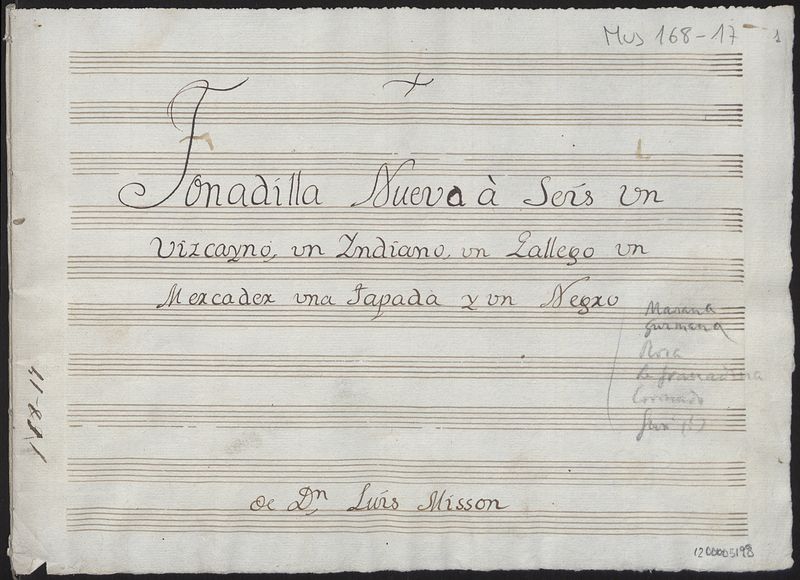 Mus 168-17
1
Tonadilla Nueva à Seis un
Vizcayno, un Yndiano, un Gallego un
Mercader una Tapada y un Negro
Mariana
Guzmana
Rosa
La Granadina
Coronado
de Dn Luis Misson
1200005198